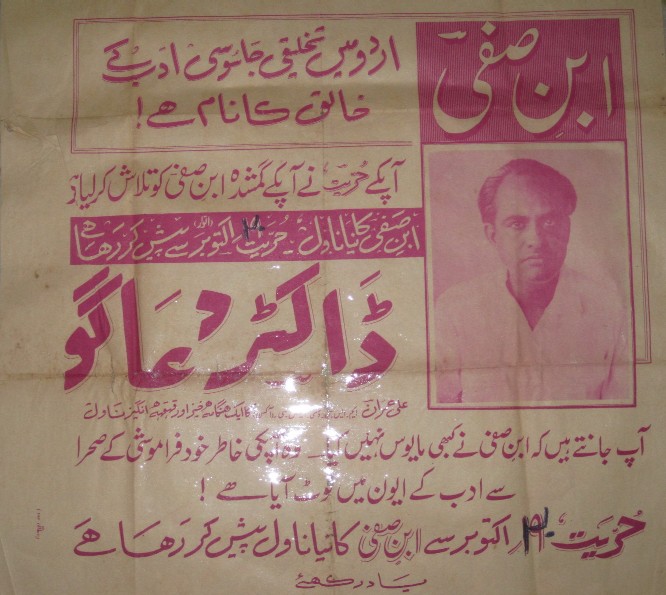 ابنِ صفی
اردو میں تخلیقی جاسوسی ادب کے
خالق کا نام ہے!
آپکے حُریت نے آپکے گمشدہ ابنِ صفی کو تلاش کر لیا ہے
ابنِ صفی کا نیا ناول۔ حُریت ۳۰ اکتوبر سے پیش کر رہا ہے
ڈاکٹر دعاگو
علی عمران کا ایک ہنگامہ خیز اور قہقہہ انگیز ناول
آپ جانتے ہیں کہ ابنِ صفی نے کبھی مایوس نہیں کیا۔ وہ آپکی خاطر خود فراموشی کے صحرا
سے ادب کے ایوان میں لوٹ آیا ہے!
حُریت ۳۰ اکتوبر سے ابنِ صفی کا نیا ناول پیش کر رہا ہے
یاد رکھئے